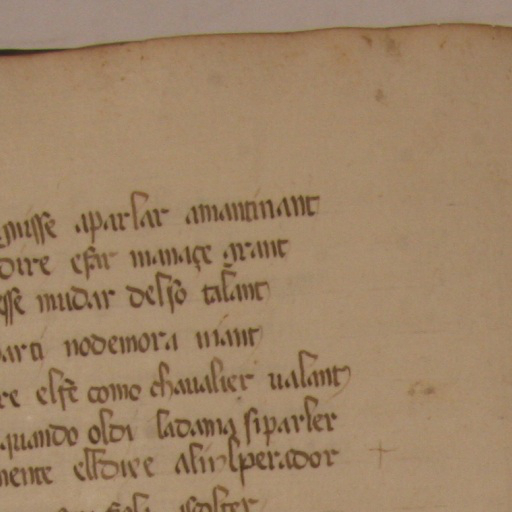 aparlar amantinant
dire efar manaçe grant
esse mudar delso talant
parti nodemora niant
re elfe como chaualier ualant
quando oldi ladama siparler
mente elfdire alinlperador